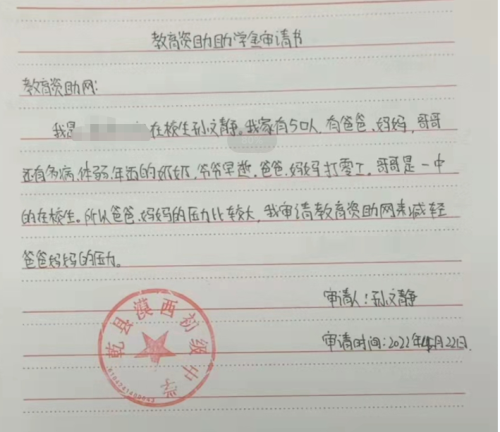 教育资助助学金申请书
教育资助网:
我是在校生孙文静。我家有5口人,有爸爸、妈妈、哥哥
还有多病、体弱、年迈的奶奶,爷爷早逝,爸爸、妈妈打零工,哥哥是一中
的在校生。所以爸爸、妈妈的压力比较大,我申请教育资助网来减轻
爸爸妈妈的压力。
申请人:孙文静
申请时间:2022年4月22日
乾县漠西初级中学